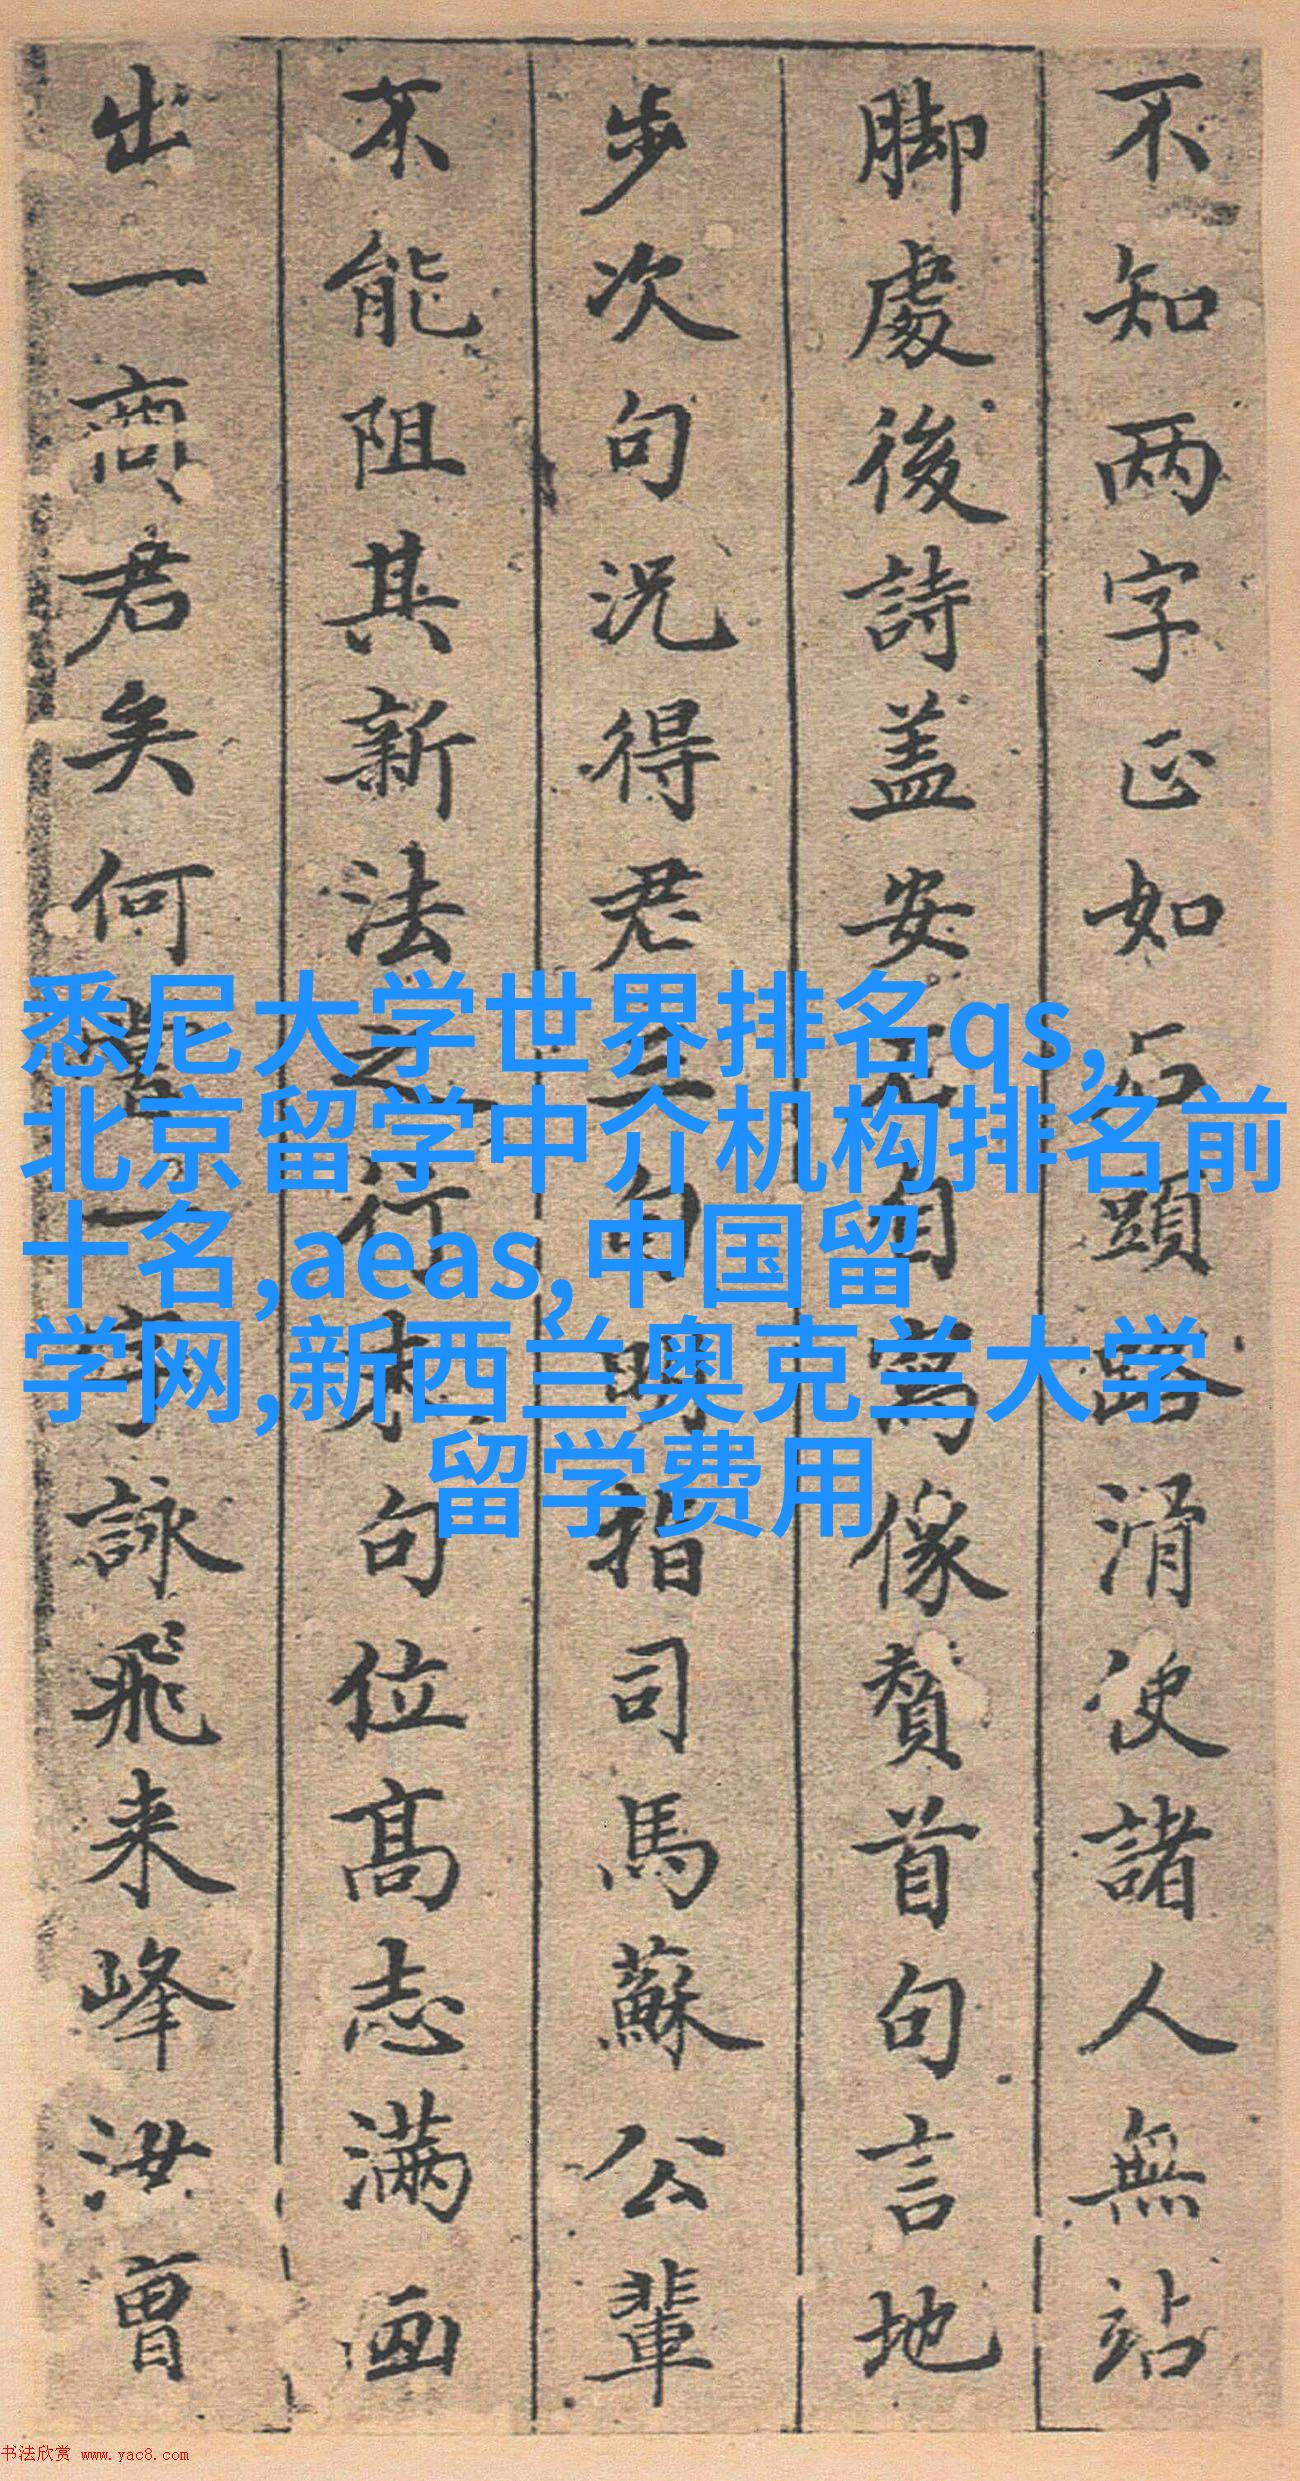 不知两字正如石頭路滑使諸人無站
脚處後詩盖安石自寓像贊首句言地
步次句况得君三句明指司馬蘇公輩
不能阻其新法之行末句位高志满画
出一商君矣何一字詠飛来峰汝曾
悉尼大学世界排名qs,
北京留学中介机构排名前
十名,aeas,中国留
学网,新西兰奥克兰大学
留学费用
书法欣赏 www.yac8.com